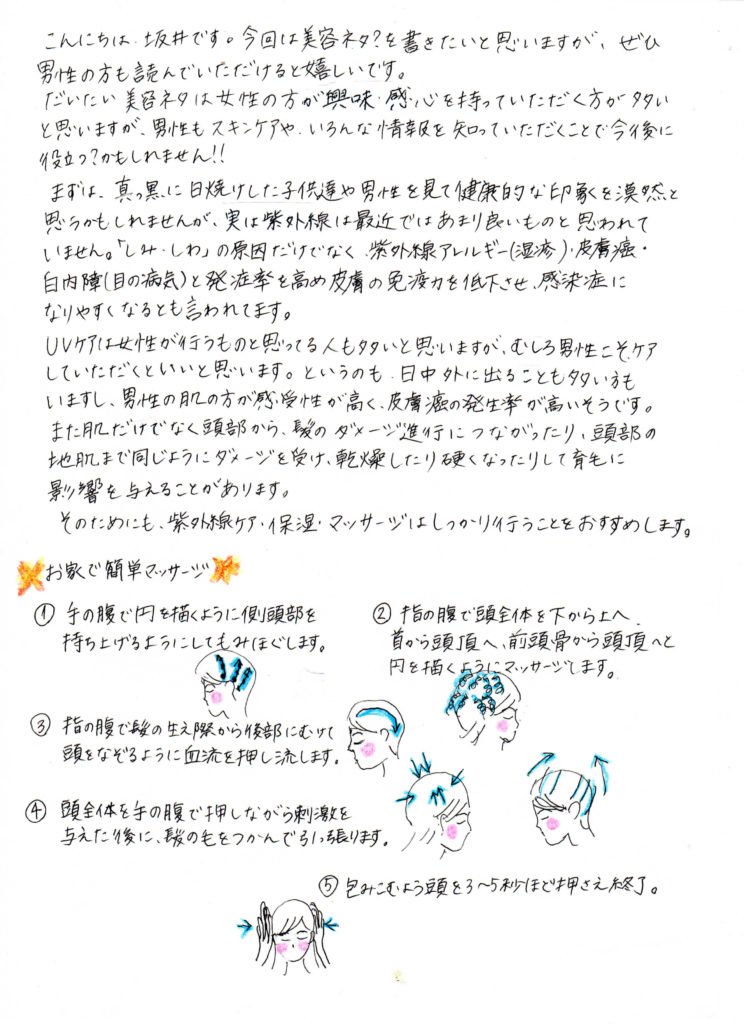 こんにちは、坂井です。今回は美容ネタ?を書きたいと思いますが、ぜひ
男性の方も読んでいただけると嬉しいです。
だいたい美容ネタは女性の方が興味・感心を持っていただく方が多い
と思いますが、男性もスキンケアや、いろんな情報を知っていただくことで今後に
役立つ?かもしれません!!
まずは、真っ黒に日焼けした子供達や男性を見て健康的な印象を漠然と
思うかもしれませんが、実は紫外線は最近ではあまり良いものと思われて
いません。「しみ・しわ」の原因だけでなく、紫外線アレルギー(湿疹)・皮膚癌・
白内障(目の病気)と発症率を高め皮膚の免疫力を低下させ、感染症に
なりやすくなるとも言われてます。
UVケアは女性が行うものと思ってる人も多いと思いますが、むしろ男性こそケア
していただくといいと思います。というのも、日中外に出ることも多い方も
いますし、男性の肌の方が感受性が高く、皮膚癌の発生率が高いそうです。
また肌だけでなく頭部から、髪のダメージ進行につながったり、頭部の
地肌まで同じようにダメージを受け、乾燥したり硬くなったりして育毛に
影響を与えることがあります。
そのためにも、紫外線ケア・保湿・マッサージはしっかり行うことをおすすめします。
お家で簡単マッサージ
① 手の腹で円を描くように側頭部を
持ち上げるようにしてもみほぐします。
② 指の腹で頭全体を下から上へ
首から頭頂へ、前頭骨から頭頂へと
円を描くようにマッサージします。
③ 指の腹で髪の生え際から後部にむけて
頭をなぞるように血流を押し流します。
④ 頭全体を手の腹で押しながら刺激を
与えた後に、髪の毛をつかんで引っ張ります。
⑤ 包みこむよう頭を3～5秒ほど押さえ終了。